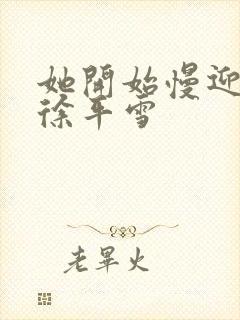 她開始慢迎
徐平雪
老畢火